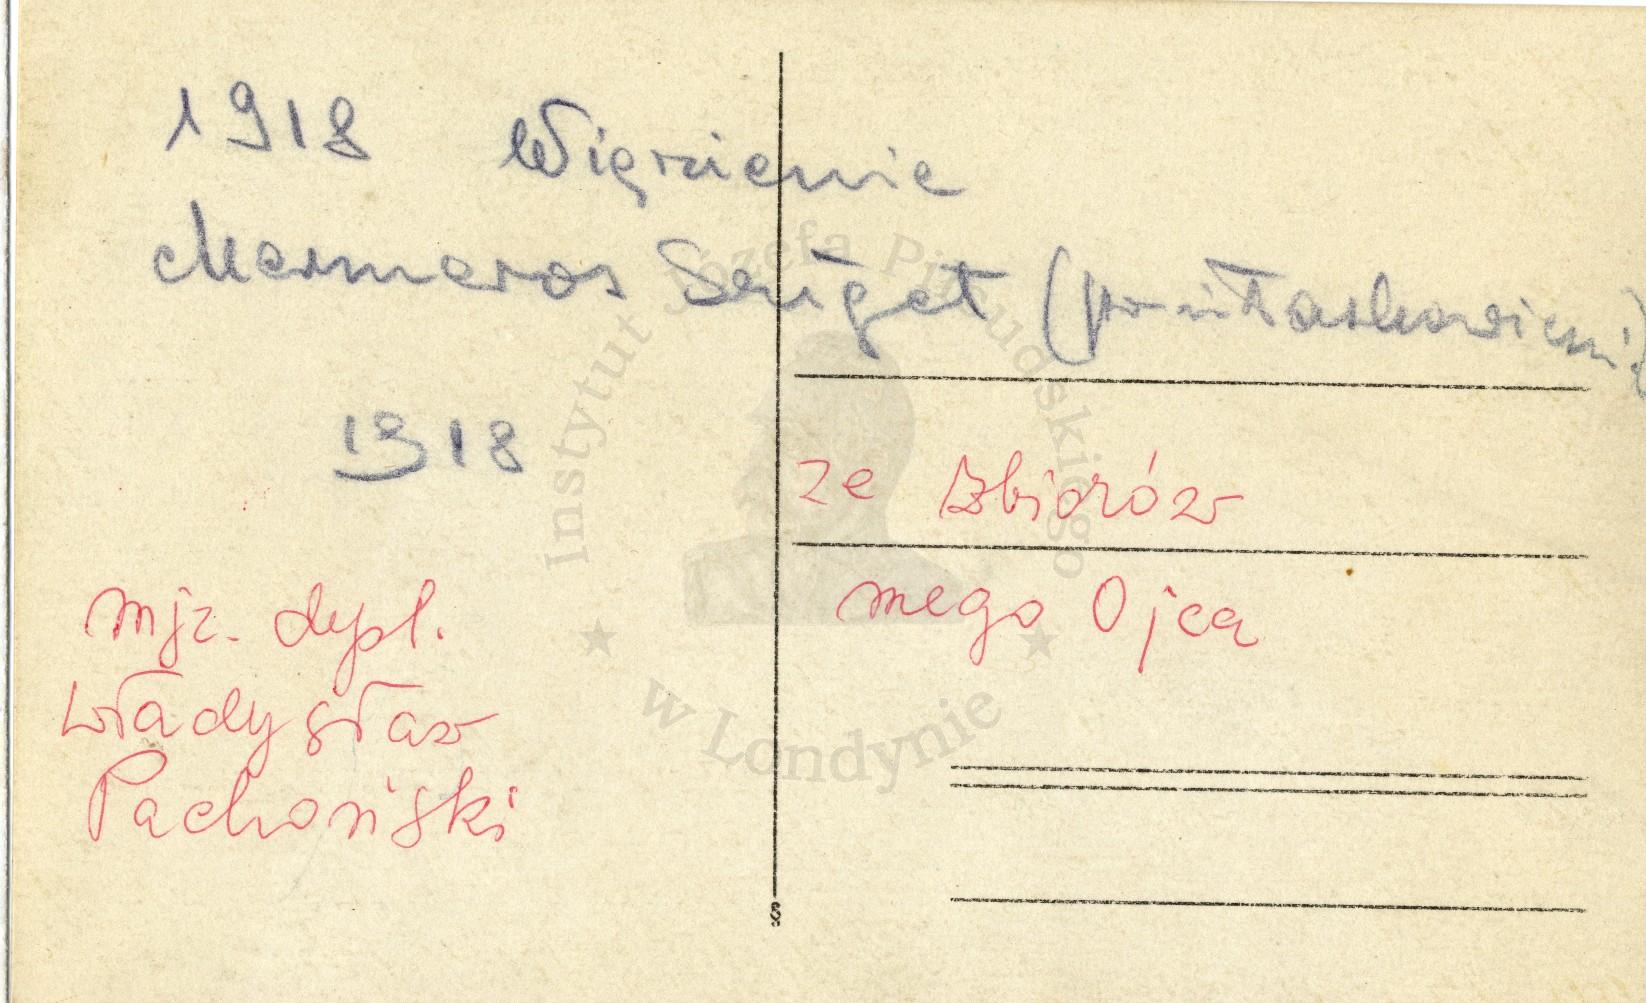 1918 Więzienie
Marmaros Sziget (po ułaskawieniu)
1918
mjr. dypl.
Władysław
Pachoński
ze zbiorów
mego Ojca
Instytut Józefa Piłsudskiego
w Londynie
8